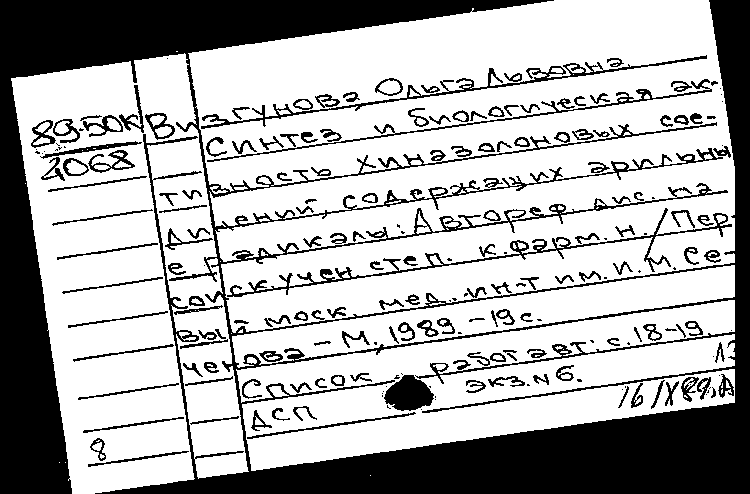 89-50К Визгунова, Ольга Львовна.
4068 Синтез и биологическая ак-
тивность хиназолоновых сое-
динений, содержащих арильны
е радикалы: Автореф. дис. на
соиск. учен. степ. к. фарм. н. / Пер-
вый моск. мед. ин-т им. И. М. Се-
ченова – М., 1989. – 19 с.
Список работ авт: с. 18-19
ДСП экз. № б.
8